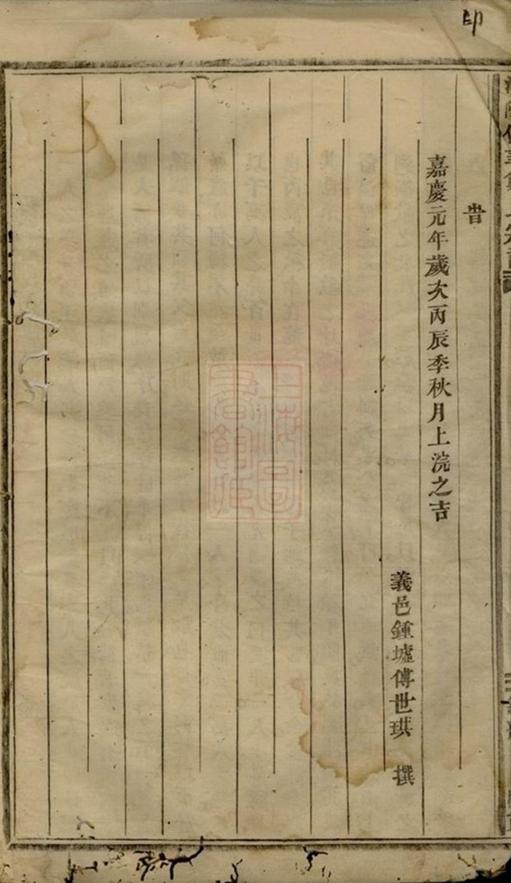 印
昔
嘉慶元年歲次丙辰季秋月上浣之吉
義邑鍾墟傅世珙 撰